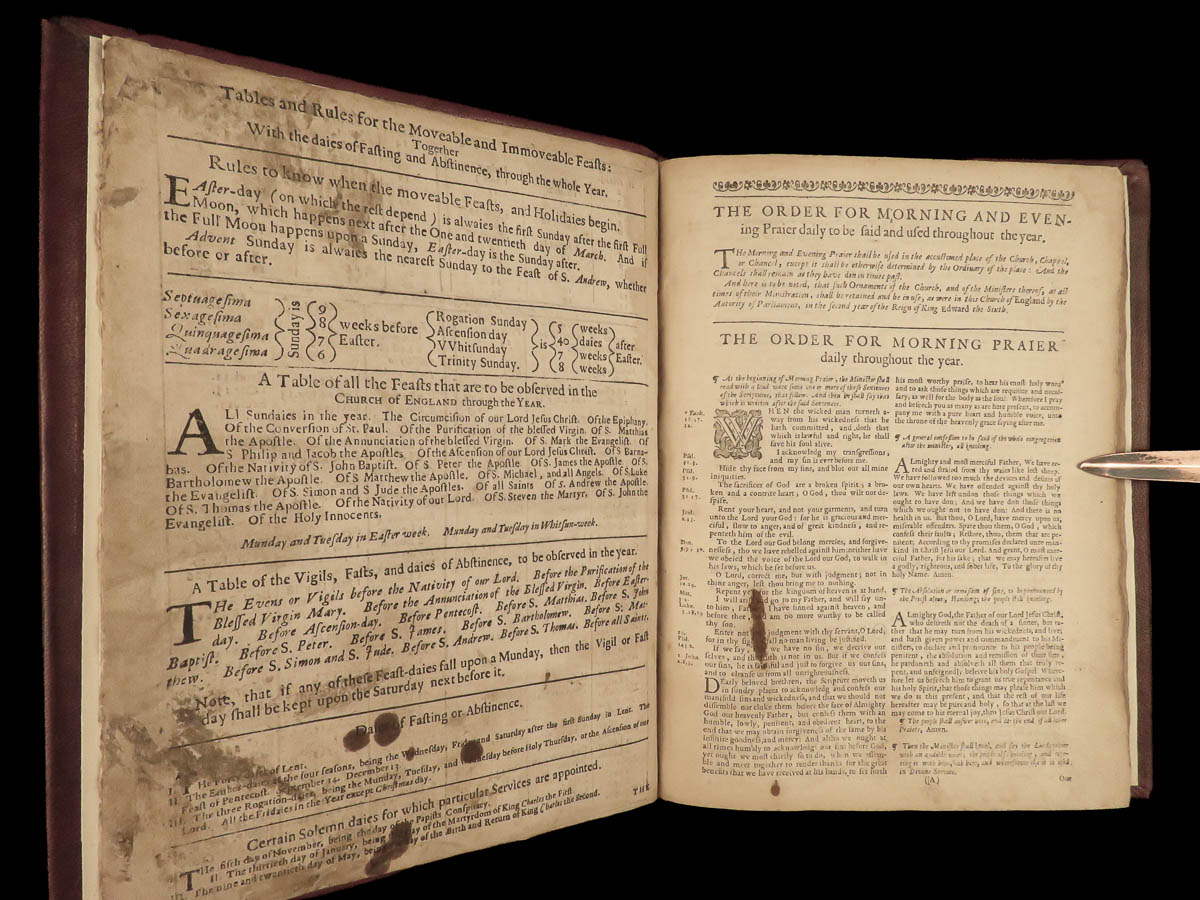 Tables and Rules for the Moveable and Immoveable Feaſts:
Together
With the daies of Faſting and Abſtinence, through the whole Year.
Rules to know when the moveable Feaſts, and Holidaies begin.
EAſter-day (on which the reſt depend) is alwaies the firſt Sunday after the firſt Full
Moon, which happens next after the One and twentieth day of March. And if
the Full Moon happens upon a Sunday, Eaſter-day is the Sunday after.
Advent Sunday is alwaies the neareſt Sunday to the Feaſt of S. Andrew, whether
before or after.
Septuageſima
Sexageſima
Quinquageſima
Quadrageſima
Sunday is
9
8
7
6
weeks before
Eaſter.
Rogation Sunday
Aſcenſion day
VVhitſunday
Trinity Sunday.
is
5 weeks
40 daies
7 weeks
8 weeks
after
Eaſter.
A Table of all the Feaſts that are to be obſerved in the
CHURCH OF ENGLAND through the YEAR.
ALl Sundaies in the year. The Circumciſion of our Lord Jeſus Chriſt. Of the Epiphany.
Of the Converſion of St. Paul. Of the Purification of the bleſſed Virgin. Of S. Matthias
the Apoſtle. Of the Annunciation of the bleſſed Virgin. Of S. Mark the Evangeliſt. Of
S Philip and Jacob the Apoſtles. Of the Aſcenſion of our Lord Jeſus Chriſt. Of S. Barna-
bas. Of the Nativity of S. John Baptiſt. Of S. Peter the Apoſtle. Of S. James the Apoſtle. Of S.
Bartholomew the Apoſtle. Of S Matthew the Apoſtle. Of S. Michael, and all Angels. Of S. Luke
the Evangeliſt. Of S. Simon and S Jude the Apoſtles. Of all Saints. Of S. Andrew the Apoſtle.
Of S. Thomas the Apoſtle. Of the Nativity of our Lord. Of S. Steven the Martyr. Of S. John the
Evangeliſt. Of the Holy Innocents.
Munday and Tueſday in Eaſter week. Munday and Tueſday in Whitſun-week.
A Table of the Vigils, Faſts, and daies of Abſtinence, to be obſerved in the year.
THe Evens or Vigils before the Nativity of our Lord. Before the Purification of the
Bleſſed Virgin Mary. Before the Annunciation of the Bleſſed Virgin. Before Eaſter-
day. Before Aſcenſion-day. Before Pentecoſt. Before S. Matthias. Before S. John
Baptiſt. Before S. Peter. Before S. James. Before S. Bartholomew. Before S. Mat-
thew. Before S. Simon and S. Jude. Before S. Andrew. Before S. Thomas. Before all Saints.
Note, that if any of theſe Feaſt-daies fall upon a Munday, then the Vigil or Faſt
day ſhall be kept upon the Saturday next before it.
of Faſting or Abſtinence.
I. THe Forty of Lent.
II. The Ember-daies at the four ſeaſons, being the Wedneſday, Friday and Saturday after the firſt Sunday in Lent. The
Feaſt of Pentecoſt. September 14. December 13.
III. The three Rogation-daies, being the Munday, Tueſday, and Wedneſday before Holy Thurſday, or the Aſcenſion of our
Lord. All the Fridaies in the Year except Chriſtmas day.
Certain Solemn daies for which particular Services are appointed.
THe fifth day of November, being the day of the Papiſts Conſpiracy.
II. The thirtieth day of January, being day of the Martyrdom of King Charles the Firſt.
III. The nine and twentieth day of May, being day of the Birth and Return of King Charles the Second.
THE
THE ORDER FOR MORNING AND EVEN-
ing Praier daily to be ſaid and uſed throughout the year.
THe Morning and Evening Praier ſhall be uſed in the accuſtomed place of the Church, Chappel,
or Chancel, except it ſhall be otherwiſe determined by the Ordinary of the place: And the
Chancels ſhall remain as they have don in times paſt.
And here is to be noted, that ſuch Ornaments of the Church, and of the Miniſters thereof, at all
times of their Miniſtration, ſhall be retained and be in uſe, as were in this Church of England by the
Autority of Parliament, in the ſecond year of the Reign of King Edward the Sixth.
THE ORDER FOR MORNING PRAIER
daily throughout the year.
¶ At the beginning of Morning Praier, the Miniſter ſhall
read with a loud voice ſome one or more of theſe Sentences
of the Scriptures, that follow. And then he ſhall ſay that
which is written after the ſaid Sentences.
WHEN the wicked man turneth a-
way from his wickedneſs that he
hath committed, and doth that
which is lawful and right, he ſhall
ſave his ſoul alive.
I acknowledg my tranſgreſſions,
and my ſin is ever before me.
Hide thy face from my ſins, and blot out all mine
iniquities.
The ſacrifices of God are a broken ſpirit; a bro-
ken and a contrite heart, O God, thou wilt not de-
ſpiſe.
Rent your heart, and not your garments, and turn
unto the Lord your God: for he is gracious and mer-
ciful, ſlow to anger, and of great kindneſs, and re-
penteth him of the evil.
To the Lord our God belong mercies, and forgive-
neſſes, tho we have rebelled againſt him: neither have
we obeied the voice of the Lord our God, to walk in
his laws, which he ſet before us.
O Lord, correct me, but with judgment; not in
thine anger, leſt thou bring me to nothing.
Repent ye for the kingdom of heaven is at hand.
I will ariſe and go to my Father, and will ſay un-
to him, I have ſinned againſt heaven, and
before thee am no more worthy to be called
thy ſon.
Enter not judgment with thy ſervant, O Lord;
for in thy ſight ſhall no man living be juſtified.
If we ſay we have no ſin, we deceive our
ſelves, and the truth is not in us. But if we confeſs
our ſins, he is faithful and juſt to forgive us our ſins,
and to cleanſe us from all unrighteouſneſs.
DEarly beloved brethren, the Scripture moveth us
in ſundry places to acknowledg and confeſs our
manifold ſins and wickedneſs, and that we ſhould not
diſſemble nor cloke them before the face of Almighty
God our heavenly Father, but confeſs them with an
humble, lowly, penitent, and obedient heart, to the
end that we may obtain forgiveneſs of the ſame by his
infinite goodneſs and mercy. And altho we ought at
all times humbly to acknowledg our ſins before God,
yet ought we moſt chiefly ſo to do, when we aſſem-
ble and meet together to render thanks for the great
benefits that we have received at his hands, to ſet forth
his moſt worthy praiſe, to hear his moſt holy word
and to ask thoſe things which are requiſite and neceſ-
ſary, as well for the body as the ſoul. Wherefore I pray
and beſeech you as many as are here preſent, to accom-
pany me with a pure heart and humble voice, unto
the throne of the heavenly grace ſaying after me.
¶ A general confeſſion to be ſaid of the whole congregation
after the miniſter, all kneeling.
ALmighty and moſt merciful Father, We have er-
red and ſtraied from thy waies like loſt ſheep.
We have followed too much the devices and deſires of
our own hearts. We have offended againſt thy holy
laws. We have left undon thoſe things which we
ought to have don; And we have don thoſe things
which we ought not to have don: And there is no
health in us. But thou, O Lord, have mercy upon us,
miſerable offenders. Spare thou them, O God, which
confeſs their faults; Reſtore, thou, them that are pe-
nitent; According to thy promiſes declared unto man-
kind in Chriſt Jeſu our Lord. And grant, O moſt mer-
ciful Father, for his ſake; that we may hereafter live
a godly, righteous, and ſober life, To the glory of thy
holy Name. Amen.
¶ The Abſolution or remiſſion of ſins, to be pronounced by
the Prieſt alone, ſtanding; the people ſtill kneeling.
ALmighty God, the Father of our Lord Jeſus Chriſt,
who deſireth not the death of a ſinner, but ra-
ther that he may turn from his wickedneſs, and live;
and hath given power and commandment to his Mi-
niſters, to declare and pronounce to his people being
penitent, the abſolution and remiſſion of their ſins,
he pardoneth and abſolveth all them that truly re-
pent, and unfeignedly beleive his holy Goſpel. Where-
fore let us beſeech him to grant us true repentance and
his holy Spirit, that thoſe things may pleaſe him which
we do at this preſent, and that the reſt of our life
hereafter may be pure and holy, ſo that at the laſt we
may come to his eternal joy, thro Jeſus Chriſt our Lord.
¶ The people ſhall anſwer here, and at the end of all other
Praiers, Amen.
¶ Then the Miniſter ſhall kneel, and ſay the Lords praier
with an audible voice, the people alſo kneeling, and repeat-
ing it with him, both here, and whereſoever elſe it is uſed
in Divine Service.
(A)
Our